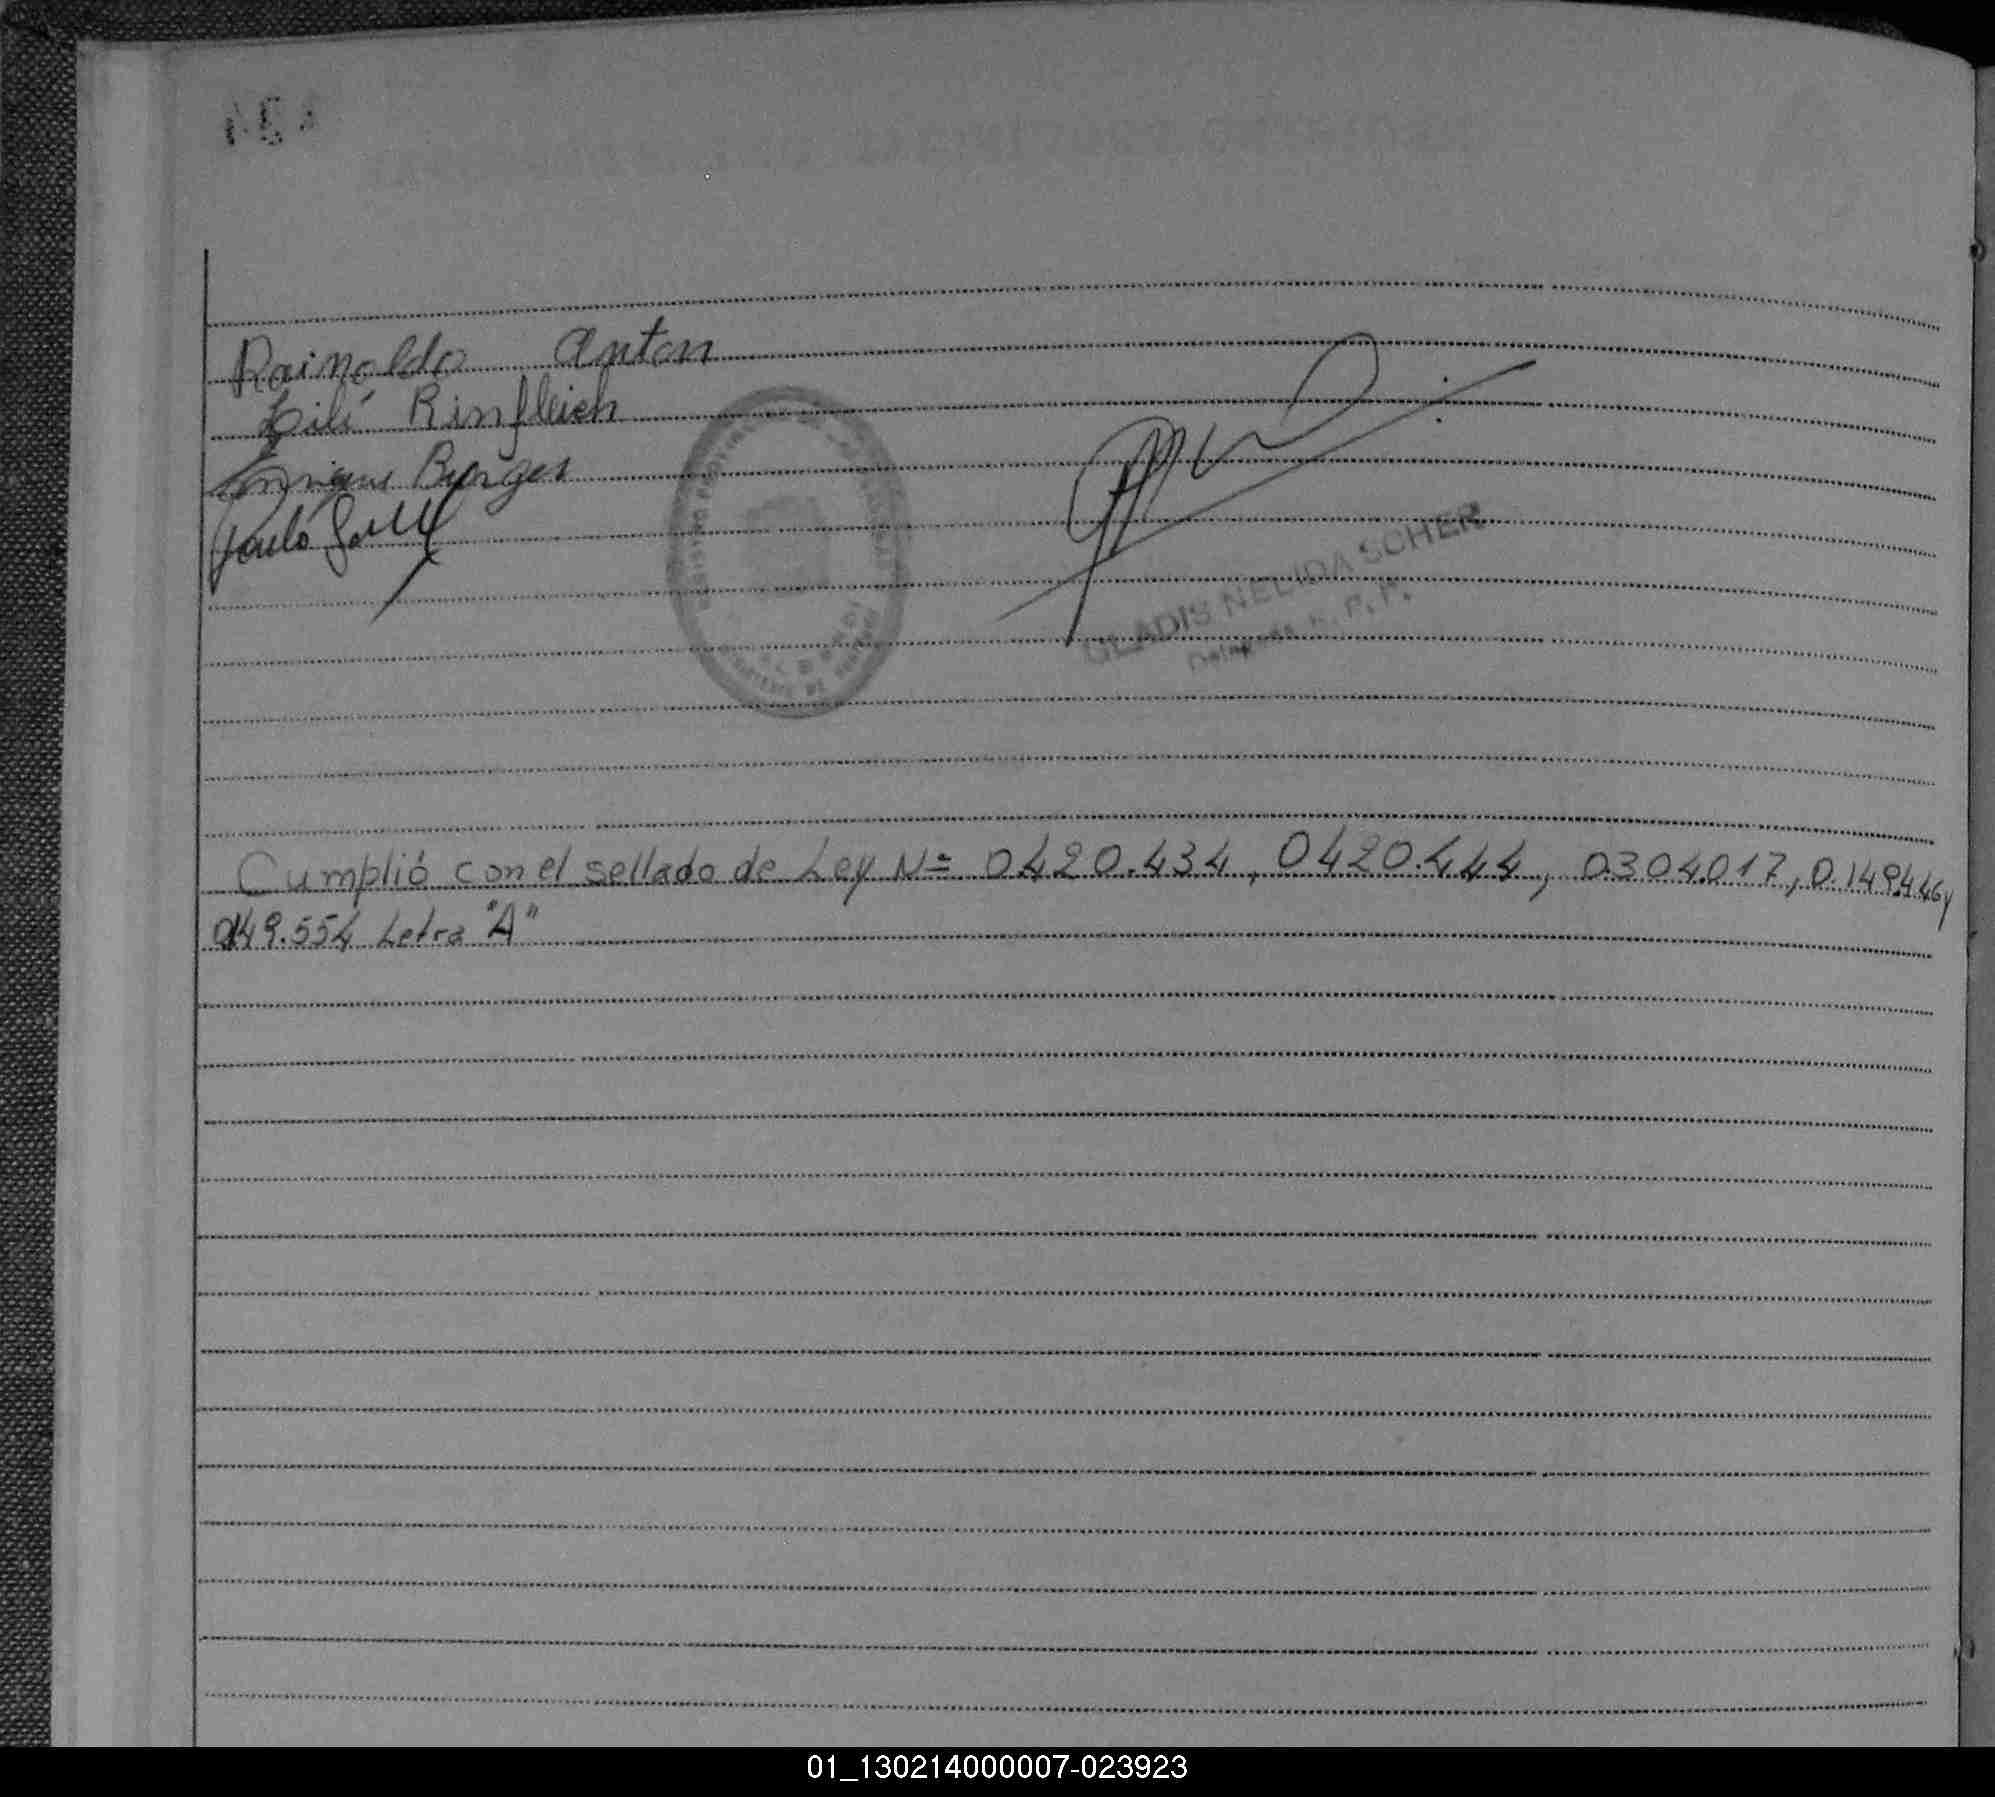 Rainoldo Anton
Lili Rinfleich
Enrique Burger
Paulo
GLADIS NELIDA SCHER
Delegada R. P. P.
Cumplió con el sellado de Ley N= 0420.434, 0420.444, 0.304.017, 0.149.446 y
0149.554 Letra "A"
01_130214000007-023923